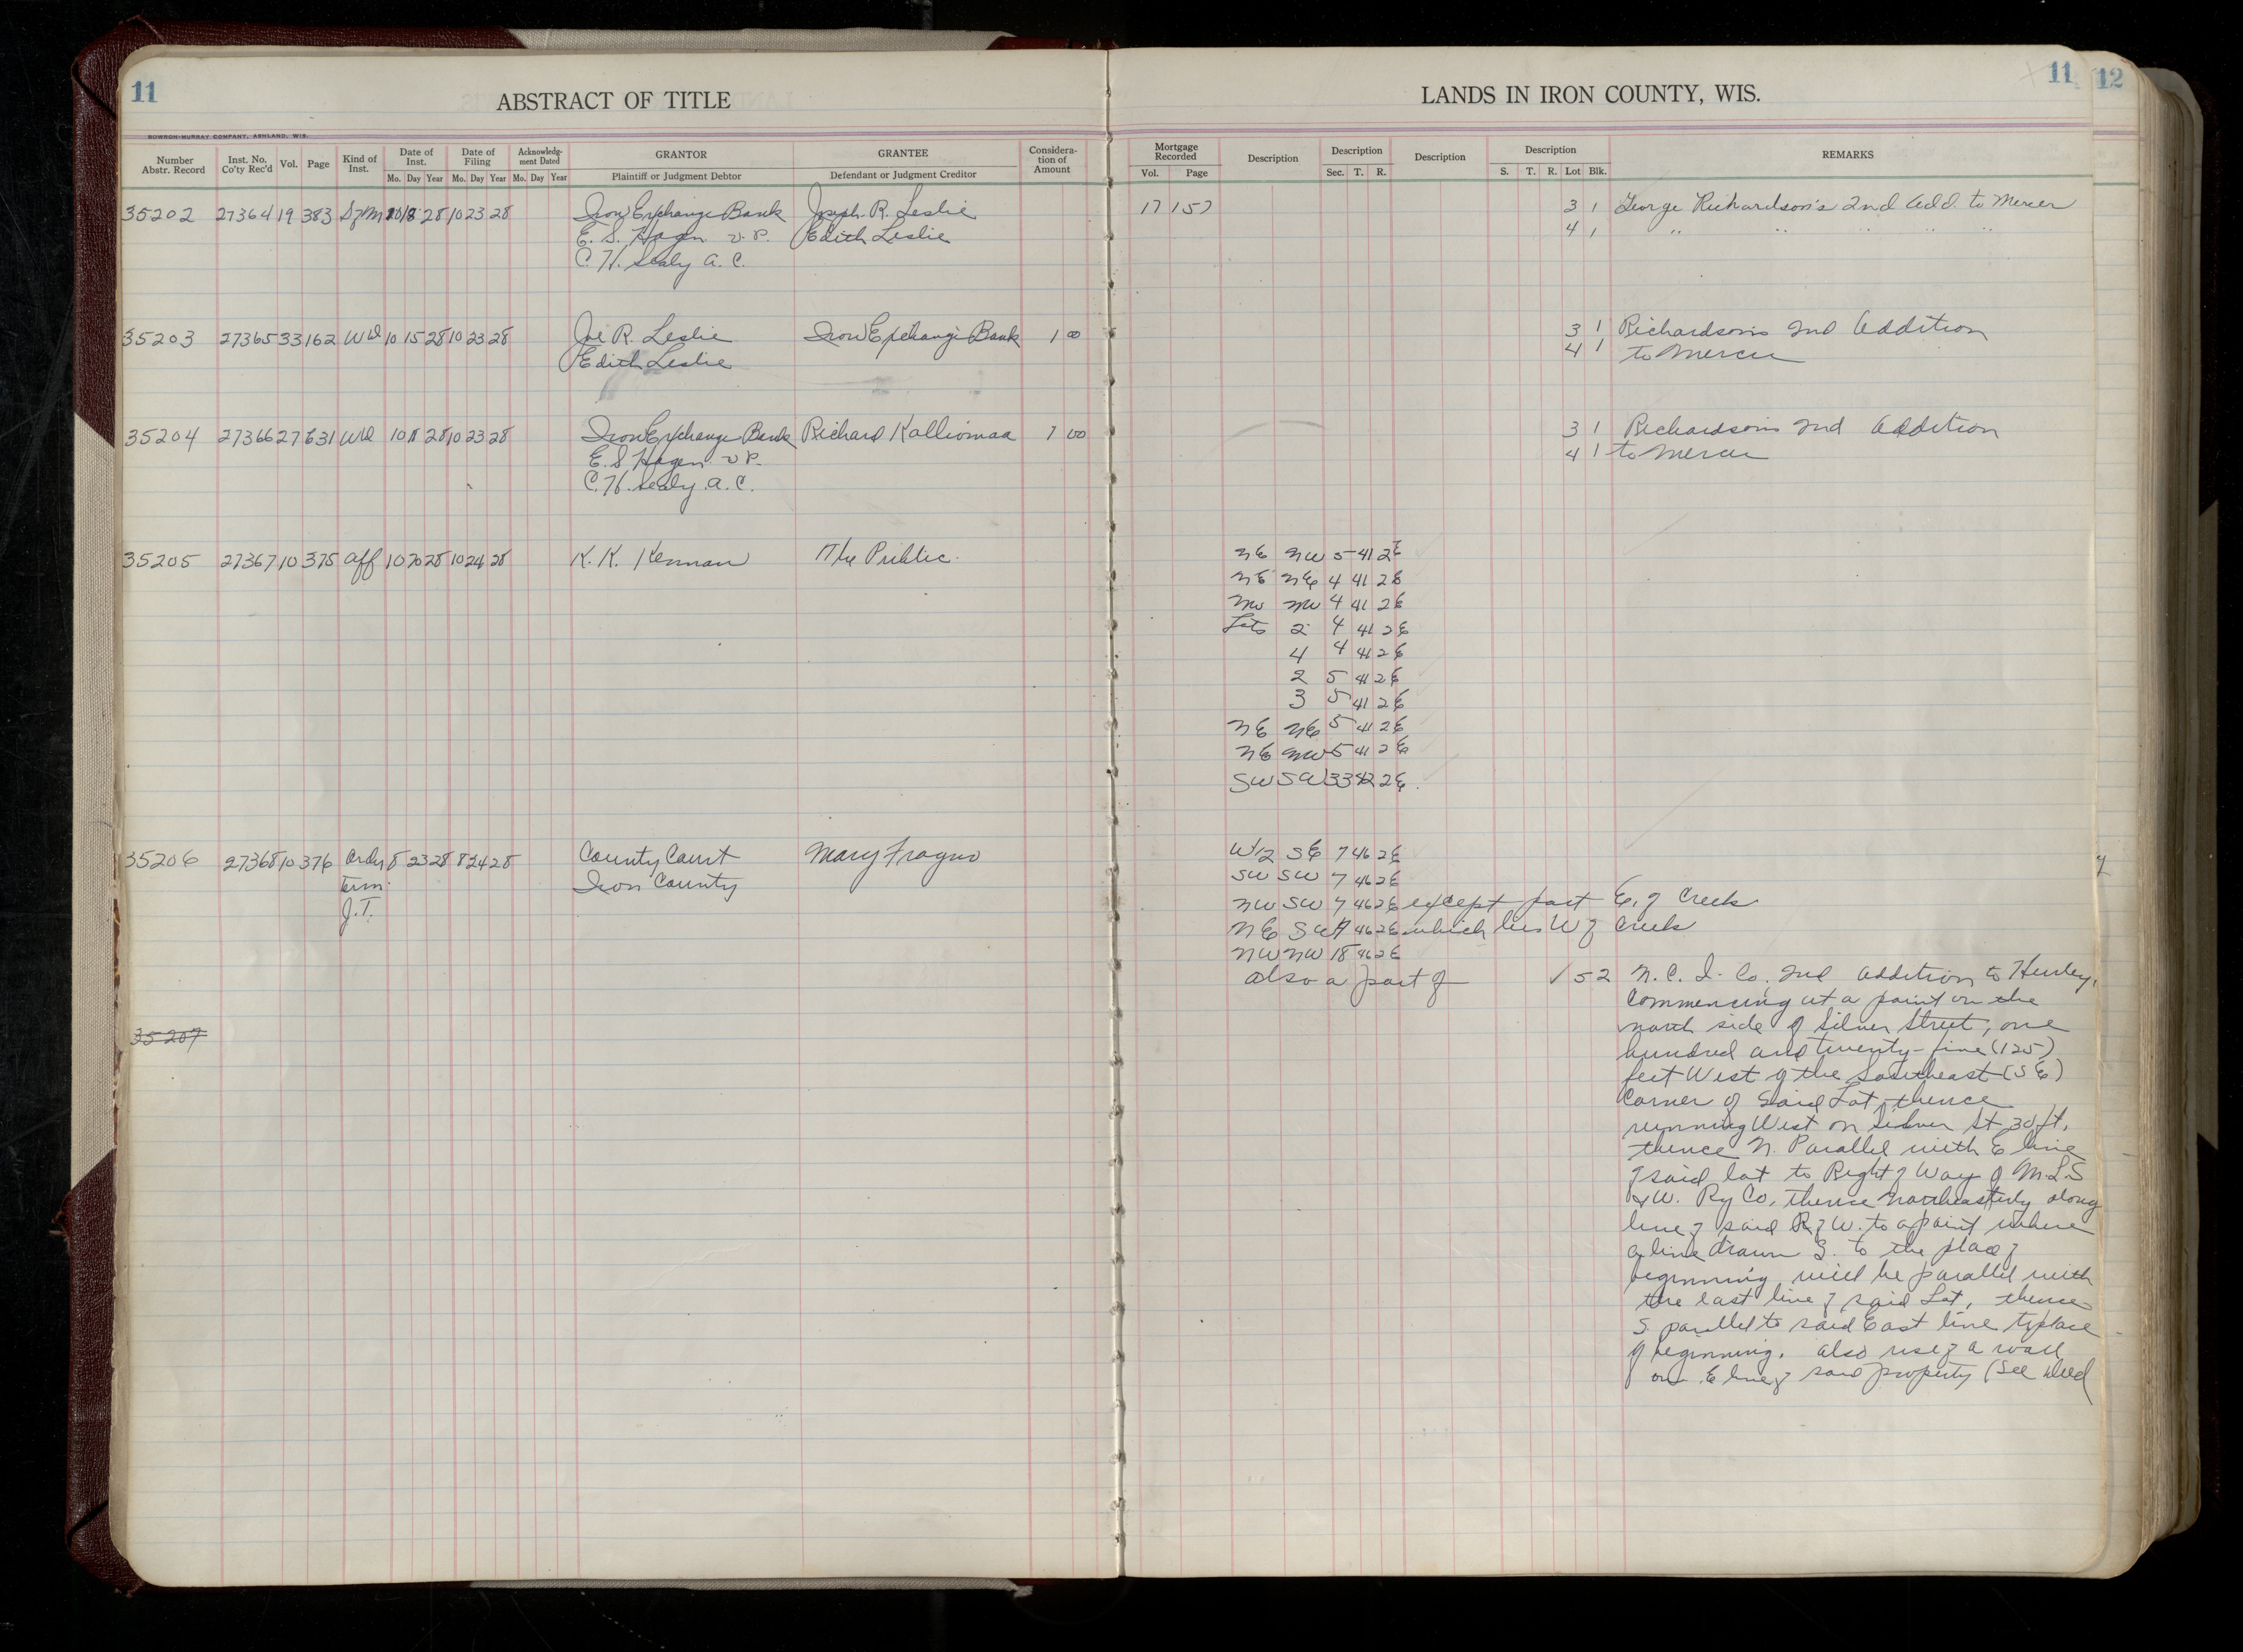 11
ABSTRACT OF TITLE
BOWRON-MURRAY COMPANY, ASHLAND, WIS.
Number Abstr. Record Inst. No. Co'ty Rec'd Vol. Page Kind of Inst. Date of Inst. Mo. Day Year Date of Filing Mo. Day Year Acknowledg- ment Dated Mo. Day Year GRANTOR Plaintiff or Judgment Debtor GRANTEE Defendant or Judgment Creditor Considera- tion of Amount
35202 27364 19 383 10 18 28 10 23 28 Iron Exchange Bank Joseph R. Leslie
E. S. Hagen V. P. Edith Leslie
C. H. Sealy A. C.
35203 27365 33 162 WD 10 15 28 10 23 28 Joe R. Leslie Iron Exchange Bank 1 00
Edith Leslie
35204 27366 27 631 WD 10 8 28 10 23 28 Iron Exchange Bank Richard Kalliomaa 1 00
E. S. Hagen V P.
C. H. Sealy A. C.
35205 27367 10 375 Aff 10 20 28 10 24 28 K. K. Kennan The Public.
35206 27368 10 376 Order 8 23 28 8 24 28 County Court Mary Fragno
Term. Iron County
J. T.
35207
LANDS IN IRON COUNTY, WIS.
11
12
Mortgage Recorded Vol. Page Description Description Sec. T. R. Description Description S. T. R. Lot Blk. REMARKS
17 157 3 1 George Richardson's 2nd Add. to Mercer
4 1 " " " " "
3 1 Richardson's 2nd Addition
4 1 to Mercer
3 1 Richardson's 2nd Addition
4 1 to Mercer
NE NW 5 41 2E
NE NE 4 41 2E
NW NW 4 41 2E
Lots 2 4 41 2E
4 4 41 2E
2 5 41 2E
3 5 41 2E
NE NE 5 41 2E
NE NW 5 41 2E
SW SW 33 42 2E.
W1/2 SE 7 46 2E
SW SW 7 46 2E
NW SW 7 46 2E except part E. of Creek
NE SW 7 46 2E which lies W of Creek
NW NW 18 46 2E
Also a part of ✓ 52 N. C. I. Co. 2nd Addition to Hurley,
Commencing at a point on the
north side of Silver Street, one
hundred and twenty-five (125)
feet West of the Southeast (SE)
Corner of said Lot, thence
running West on Silver St 30 ft.
thence N. Parallel with E line
of said lot to Right of Way of M.L.S
& W. Ry Co. thence northeasterly along
line of said R of W. to a point where
a line drawn S. to the place of
beginning will be parallel with
the east line of said Lot, thence
S. parallel to said East line to place
of beginning. Also use of a wall
on E line of said property (See Deed